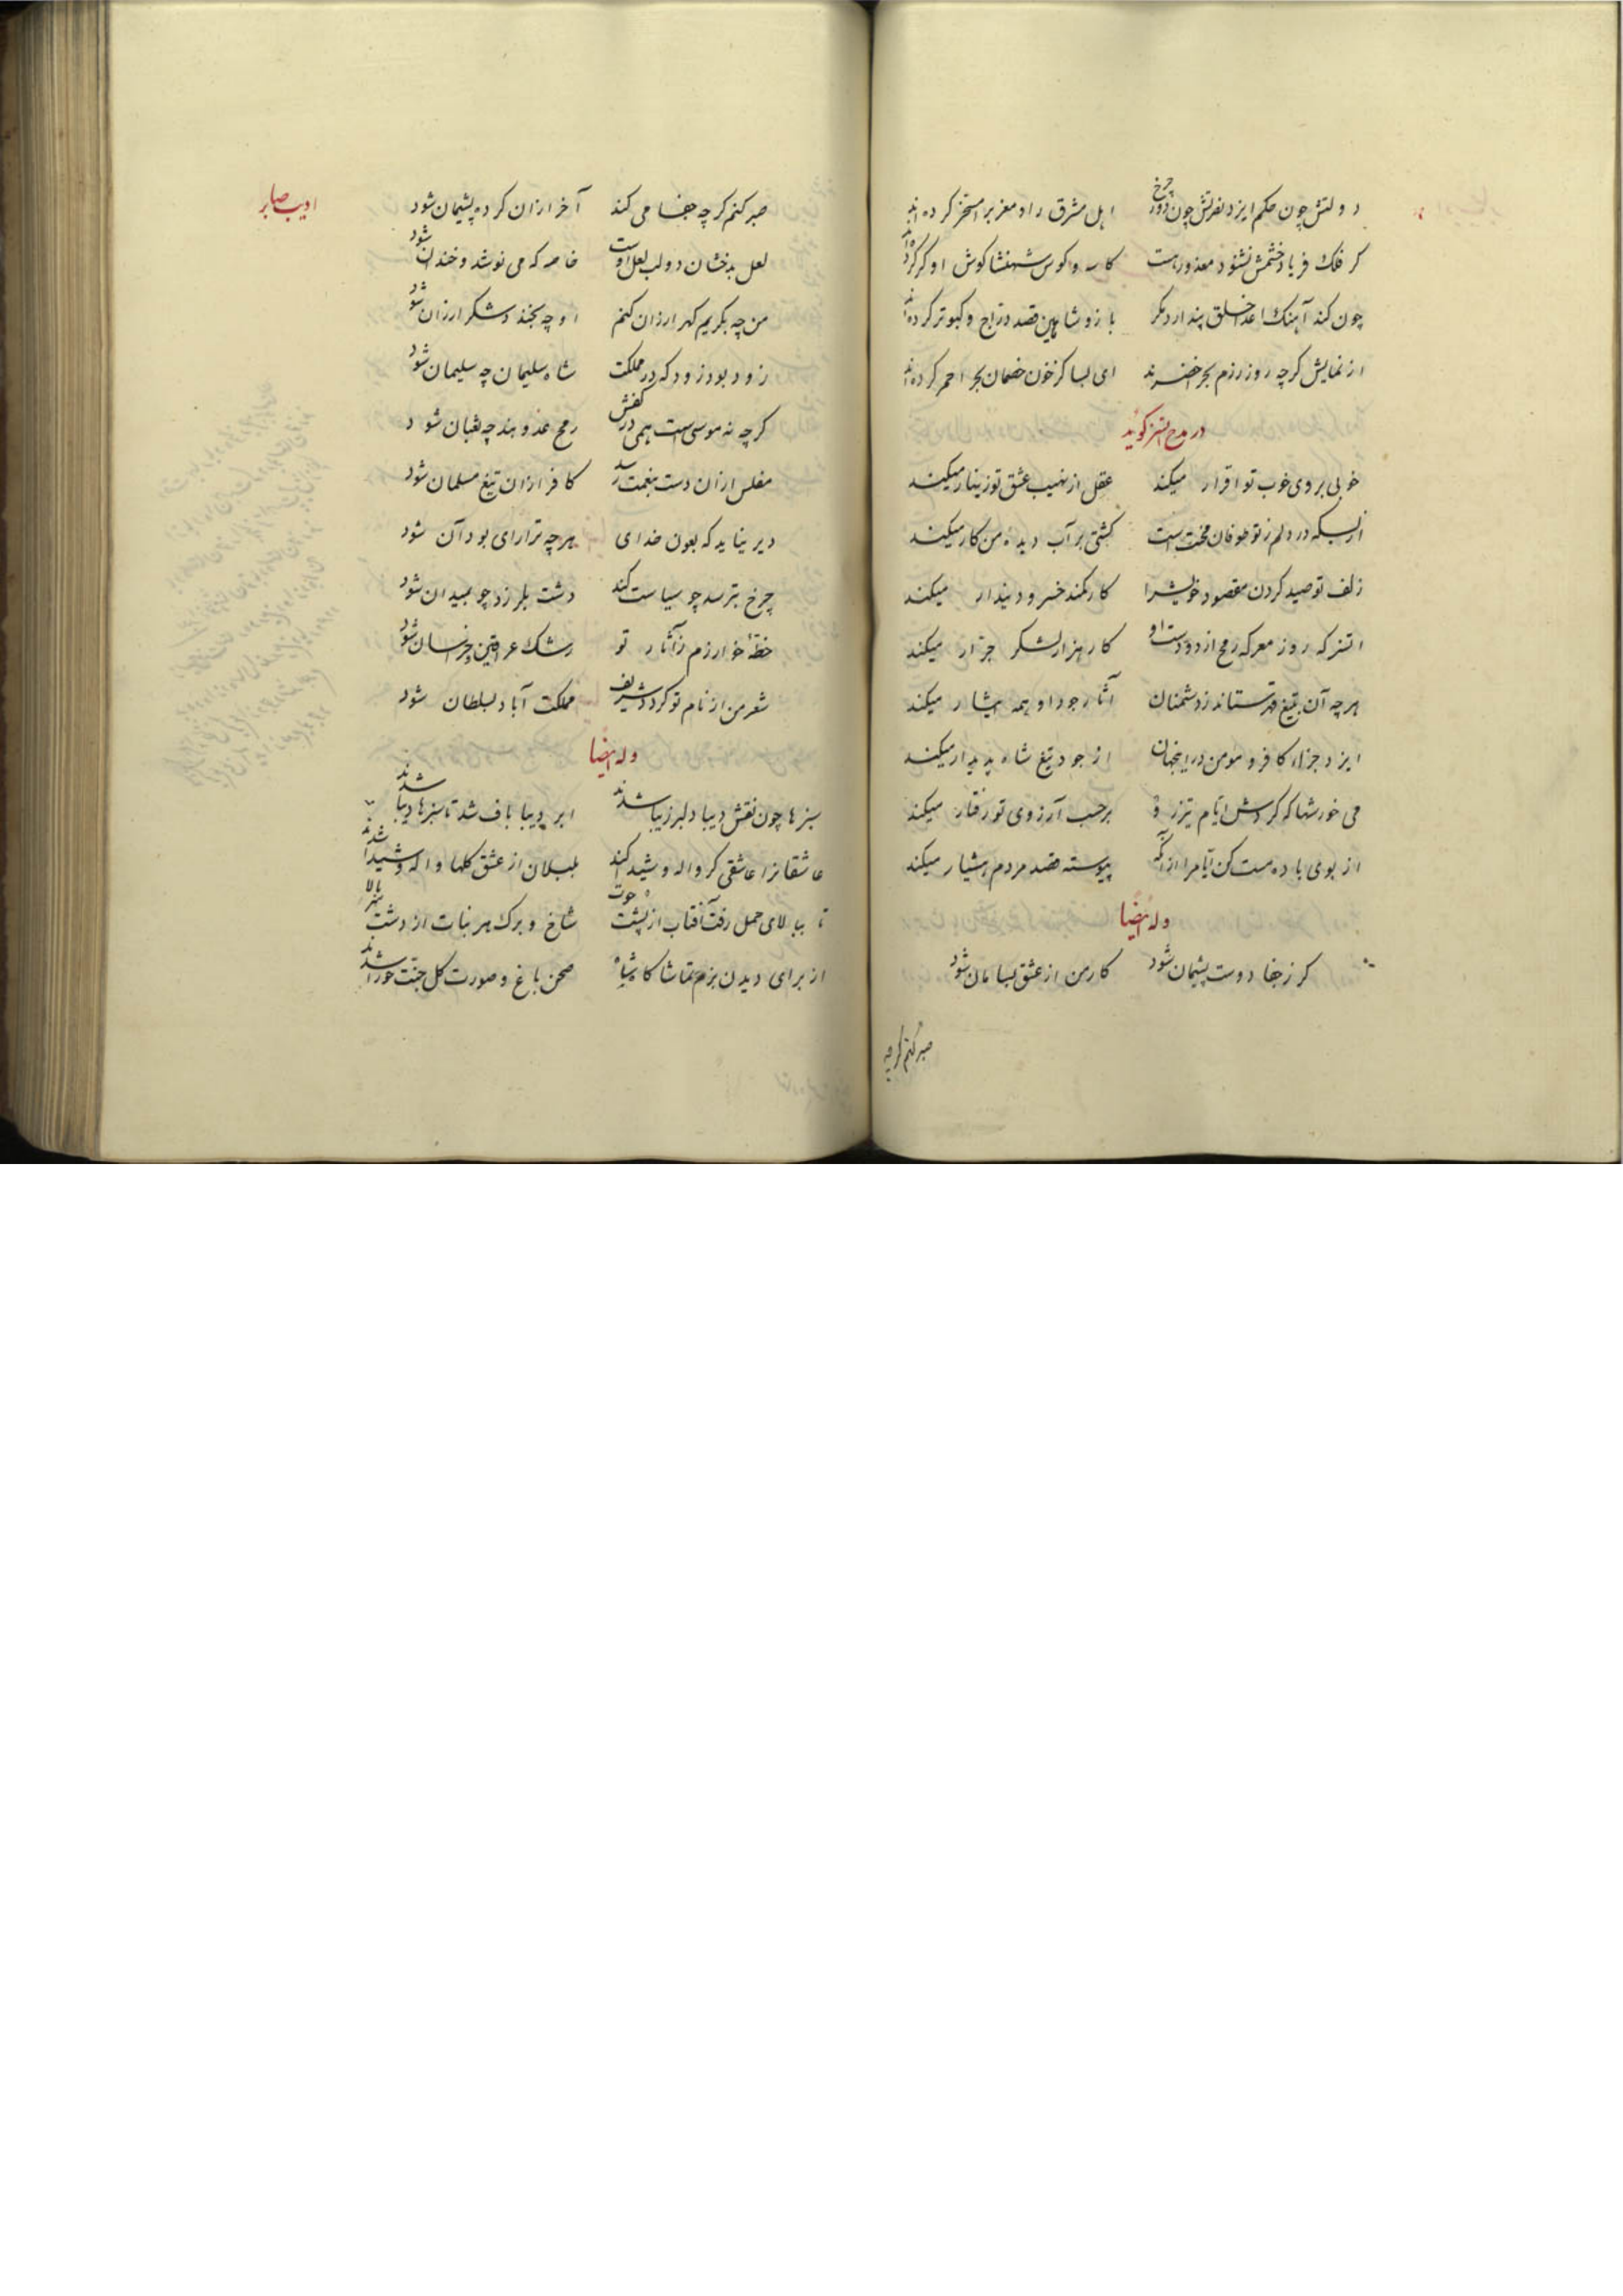 دولتش چون حکم ایزد نفرتش چون دور چرخ اهل مشرق را و مغرب را مسخر کرده اند
کر فلک فریاد خشمش نشنود معذور هست کاسه و کوس شهنشا کوش او کر کرده اند
چون کند آهنک اعدا خلق پندارد مکر باز و شاهین قصد دراج و کبوتر کرده اند
از نمایش کرچه روز رزم بحر اخضرند ای بسا کز خون خصمان بحر احمر کرده اند
در مدح اتسز کوید
خوبی بروی خوب تو اقرار میکند عقل از نهیب عشق تو زینهار میکند
از بسکه در دلم ز تو طوفان محنت است کشتی بر آب دیده من کار میکند
زلف تو صید کردن مقصود خویش را کار کمند خسرو دیندار میکند
اتسز که روز معرکه رمح از دو دست او کار هزار لشکر جرار میکند
هرچه آن بتیغ قهر ستاند ز دشمنان آثار جود او همه ایثار میکند
ایزد جزاء کافر و مومن درینجهان از جود تیغ شاه پدیدار میکند
می خور شها که کردش ایام تیزرو برحسب آرزوی تو رفتار میکند
از بوی باده مست کن ایام را از آنکه پیوسته قصد مردم هشیار میکند
وله ایضا
کر ز جفا دوست پشیمان شود کار من از عشق بسامان شود
صبر کنم کرچه
ادیب صابر
صبر کنم کرچه جفا می کند آخر ازان کرده پشیمان شود
لعل بدخشان دو لب لعل اوست خاصه که می نوشد و خندان شود
من چه بکریم کهر ارزان کنم او چه بخندد شکر ارزان شود
زود بود زود که در مملکت شاه سلیمان چه سلیمان شود
کرچه نه موسی است همی در کفش رمح عدو بند چه ثعبان شود
مفلس ازان دست بنعمت رسد کافر ازان تیغ مسلمان شود
دیر نیاید که بعون خدای هرچه ترا رای بود آن شود
چرخ بترسد چو سیاست کند دشت بلرزد چو بمیدان شود
خطه خوارزم ز آثار تو رشک عراقین و خراسان شود
شعر من از نام تو کردد شریف مملکت آباد بسلطان شود
وله ایضا
سبزها چون نقش دیبا دلبر زیبا شدند ابر دیبا باف شد تا سبزها دیبا شدند
عاشقانرا عاشقی کر واله و شیدا کند بلبلان از عشق کلها واله و شیدا شدند
تا ببالای حمل رفت آفتاب از پشت حوت شاخ و برک هر نبات از دشت بالا
از برای دیدن بزم تماشا کاه شاه صحن باغ و صورت کل جنت حورا شدند